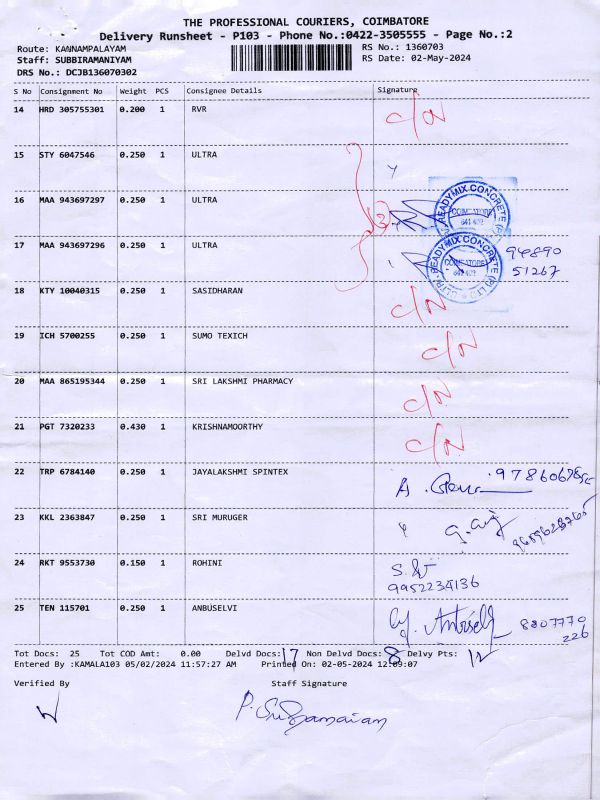 THE PROFESSIONAL COURIERS, COIMBATORE
Delivery Runsheet - P103 - Phone No.:0422-3505555 - Page No.:2
Route: KANNAMPALAYAM RS No.: 1360703
Staff: SUBBIRAMANIYAM RS Date: 02-May-2024
DRS No.: DCJB136070302
S No Consignment No Weight PCS Consignee Details Signature
14 HRD 305755301 0.200 1 RVR C/N
15 STY 6047546 0.250 1 ULTRA
16 MAA 943697297 0.250 1 ULTRA
READYMIX CONCRETE (P)
COIMBATORE
17 MAA 943697296 0.250 1 ULTRA 94890
51267
READYMIX CONCRETE (P) LTD
COIMBATORE
18 KTY 10040315 0.250 1 SASIDHARAN C/N
19 ICH 5700255 0.250 1 SUMO TEXICH C/N
20 MAA 865195344 0.250 1 SRI LAKSHMI PHARMACY C/N
21 PGT 7320233 0.430 1 KRISHNAMOORTHY C/N
22 TRP 6784140 0.250 1 JAYALAKSHMI SPINTEX
23 KKL 2363847 0.250 1 SRI MURUGER
24 RKT 9553730 0.150 1 ROHINI
9952234136
25 TEN 115701 0.250 1 ANBUSELVI 8807770
226
Tot Docs: 25 Tot COD Amt: 0.00 Delvd Docs: 17 Non Delvd Docs: 8 Delvy Pts: 12
Entered By :KAMALA103 05/02/2024 11:57:27 AM Printed On: 02-05-2024 12:09:07
Verified By Staff Signature